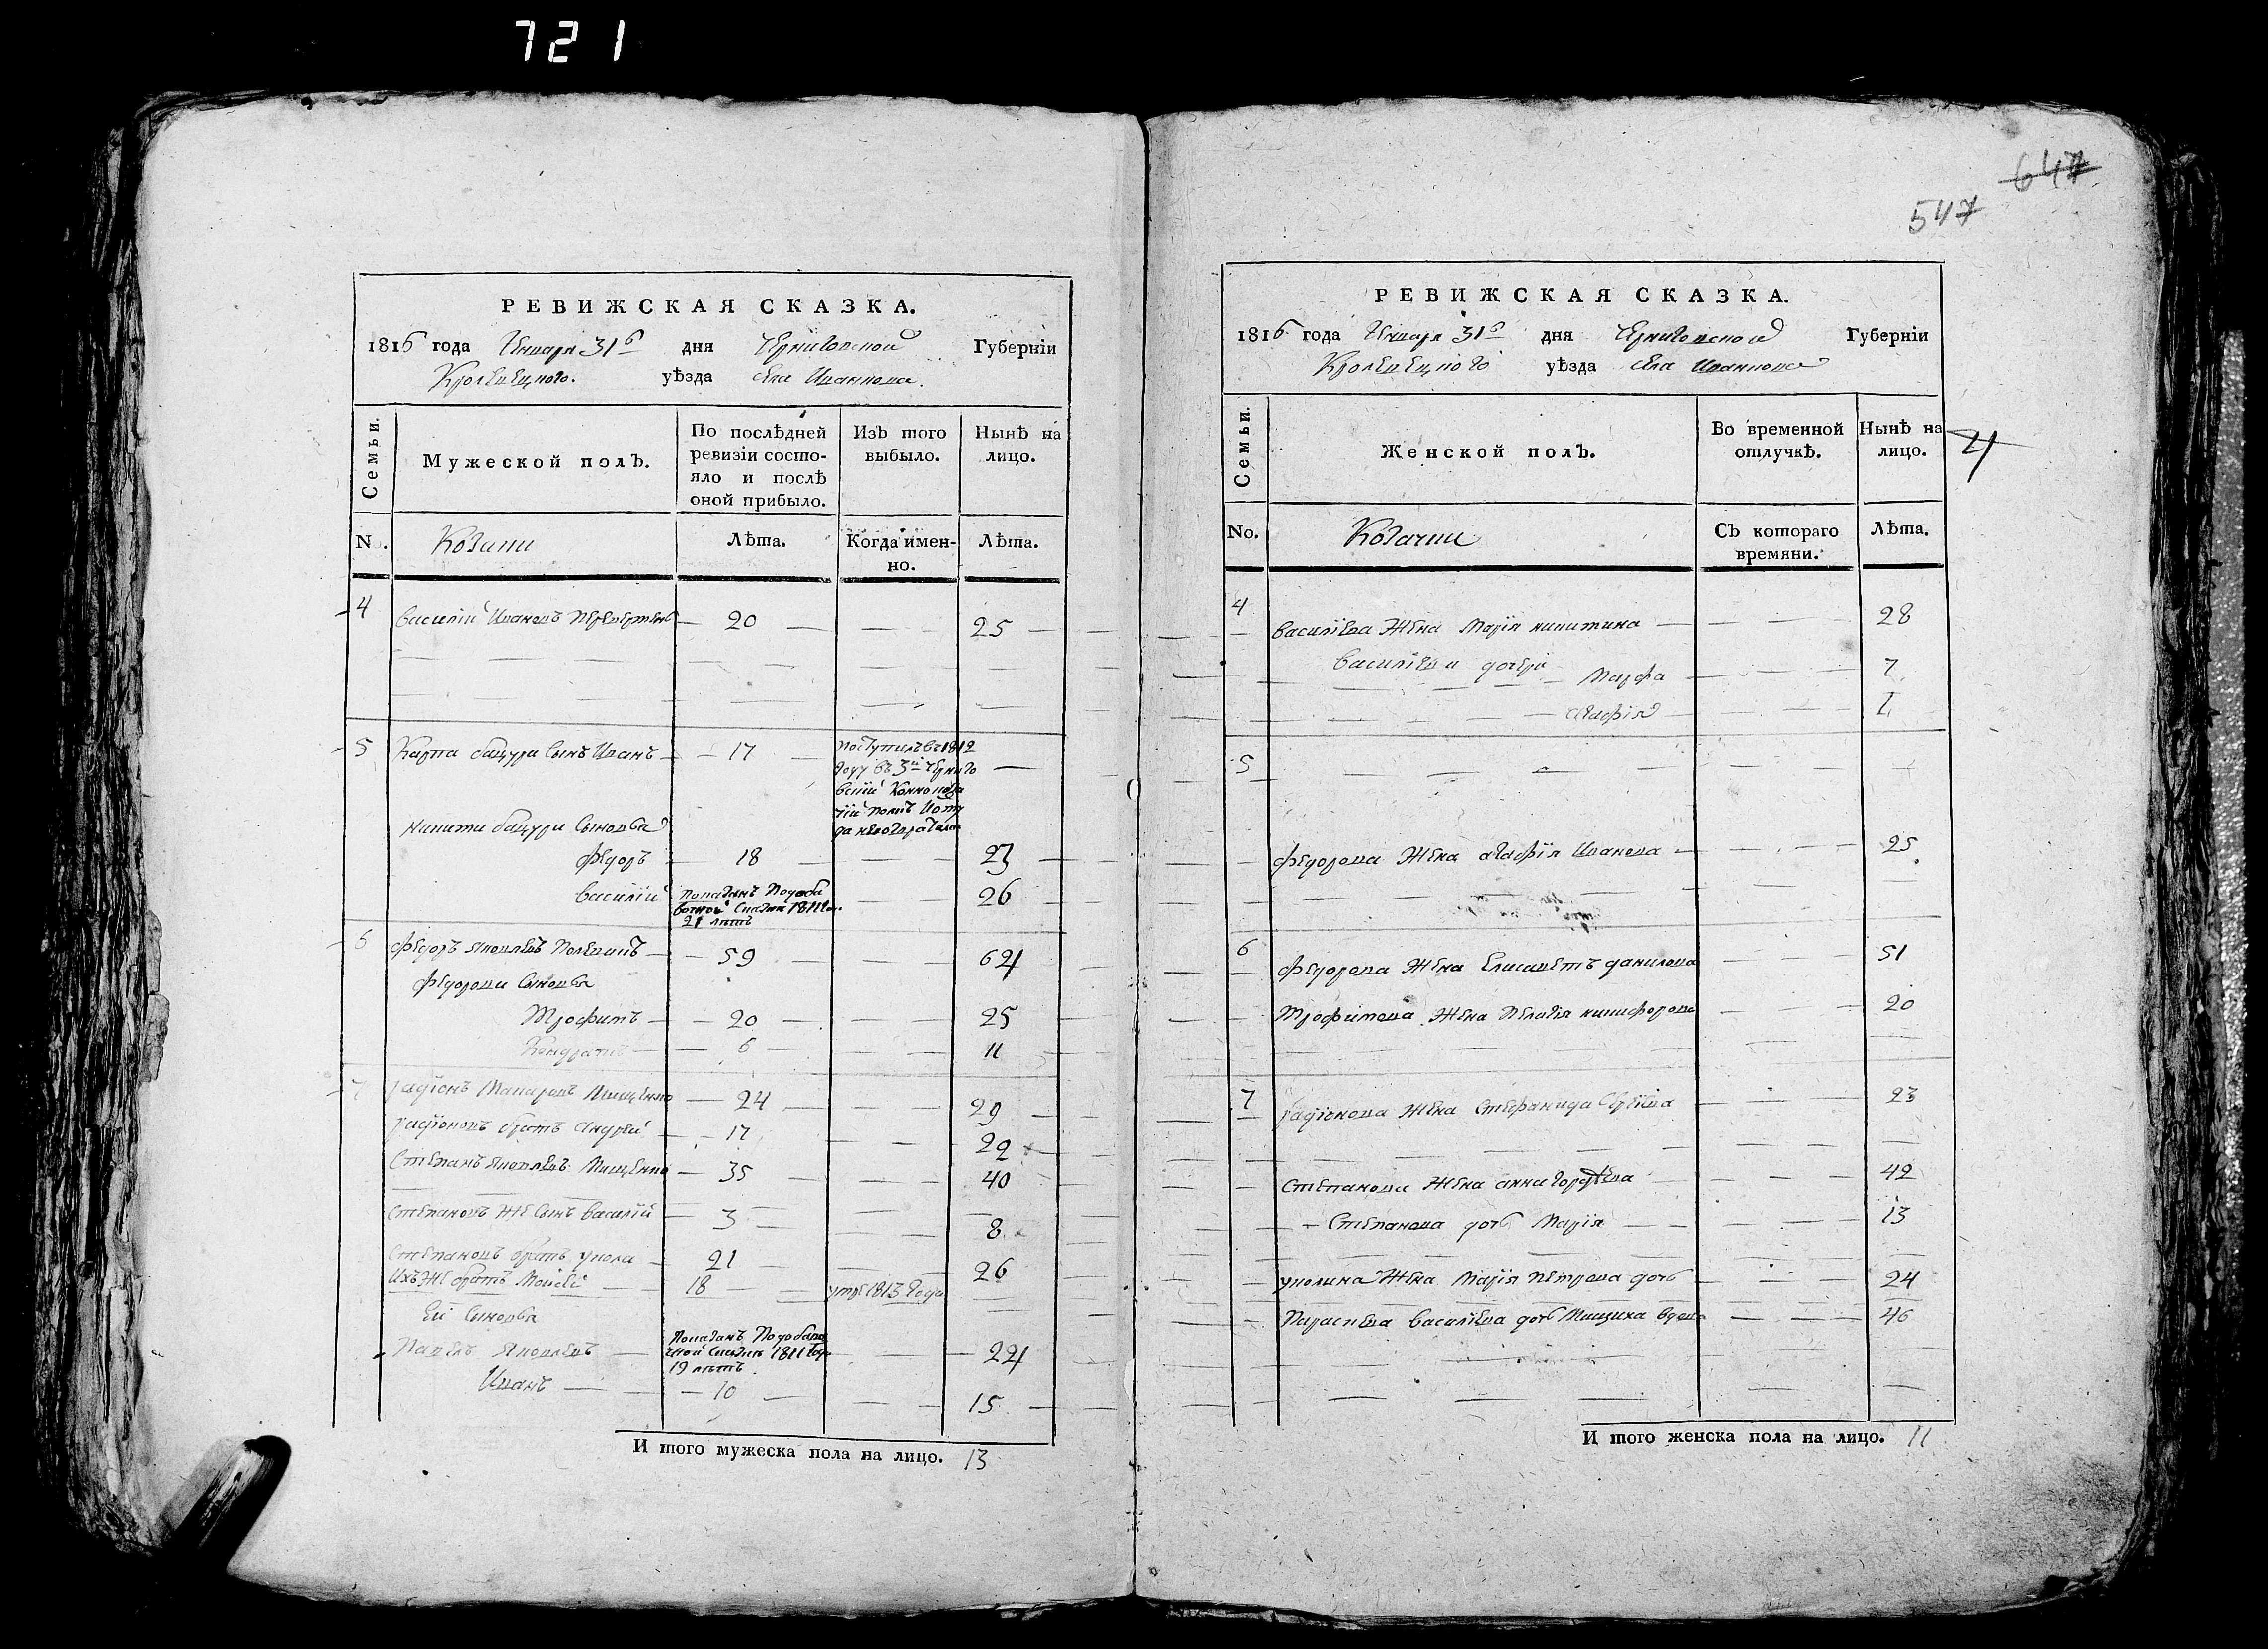 721
647
547
РЕВИЖСКАЯ СКАЗКА.
1816 года Генваря 31го дня Черниговской Губерніи
Кролевецкого уѣзда села Иванкова
Семьи.
Мужеской полъ.
По послѣдней ревизіи состо-
яло и послѣ
оной прибыло.
Изъ того
выбыло.
Нынѣ на
лицо.
No.
Козаки
Лѣта.
Когда имен-
но.
Лѣта.
4 василій Ивановъ 20 25
5 Карпа бацури Сынъ Иванъ 17 поступилъ въ 1812
году въ 3й черниго
вскій Конно коза
чій полкъ И отту
да не возвратился
никити бацури Сыновья
Федоръ 18 23
василій показанъ по доба
вочной сказки 1811 го
21 летъ 26
6 Федоръ яковлевъ 59 64
Федорови Сыновья
Трофимъ 20 25
Кондратъ 6 11
7 радіонъ Макаровъ Мищенко 24 29
радіоновъ братъ андрей 17 22
Степанъ яковлевъ Мищенко 35 40
Степановъ же Сынъ василій 3 8
Степановъ братъ 21 26
Ихъ же братъ Моисей 18 умре 1813 года
Сыновья
Павелъ яковлевъ показанъ по добаво
чной сказки 1811 году
19 летъ 24
Иванъ 10 15
И того мужеска пола на лицо. 13
РЕВИЖСКАЯ СКАЗКА.
1816 года Генваря 31го дня Черниговской Губерніи
Кролевецкого уѣзда села Иванкова
4
Семьи.
Женской полъ.
Во временной
отлучкѣ.
Нынѣ на
лицо.
No.
Козачки
Съ котораго
времяни.
Лѣта.
4 василіева жена Марія никитина 28
василіеви дочери
Марфа 7
агафія 1
5
Федорова жена агафія Иванова 25
6 Федорова жена Елисаветъ данилова 51
Трофимова жена Пелагія никифорова 20
7 радіонова жена Стефанида Сергіева 23
Степанова жена анна гордѣева 42
Степанова дочь Марія 13
жена Марія петрова дочь 24
Параскева василіева дочь вдова 46
И того женска пола на лицо. 11